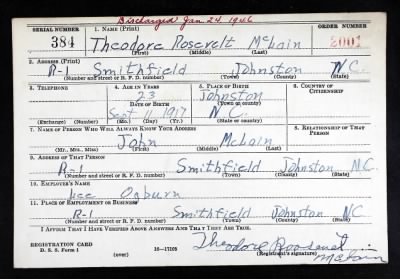 Discharged Jan. 24 1946
SERIAL NUMBER 1. NAME (Print) ORDER NUMBER
384 Theodore Rosevelt McLain 2001
(First) (Middle) (Last)
2. ADDRESS (Print)
R-1 Smithfield Johnston N.C.
(Number and street or R. F. D. number) (Town) (County) (State)
3. TELEPHONE 4. AGE IN YEARS 5. PLACE OF BIRTH 6. COUNTRY OF CITIZENSHIP
23 Johnston
DATE OF BIRTH (Town or county)
Sept 1917 N.C.
(Exchange) (Number) (Mo.) (Day) (Yr.) (State or country)
7. NAME OF PERSON WHO WILL ALWAYS KNOW YOUR ADDRESS 8. RELATIONSHIP OF THAT PERSON
John McLain
(Mr., Mrs., Miss) (First) (Middle) (Last)
9. ADDRESS OF THAT PERSON
R-1 Smithfield Johnston N.C.
(Number and street or R. F. D. number) (Town) (County) (State)
10. EMPLOYER'S NAME
Lee Ogburn
11. PLACE OF EMPLOYMENT OR BUSINESS
R-1 Smithfield Johnston N.C.
(Number and street or R. F. D. number) (Town) (County) (State)
I AFFIRM THAT I HAVE VERIFIED ABOVE ANSWERS AND THAT THEY ARE TRUE.
Theodore Roosevelt
McLain
REGISTRATION CARD
D. S. S. Form 1 (over) 16—17105 (Registrant's signature)